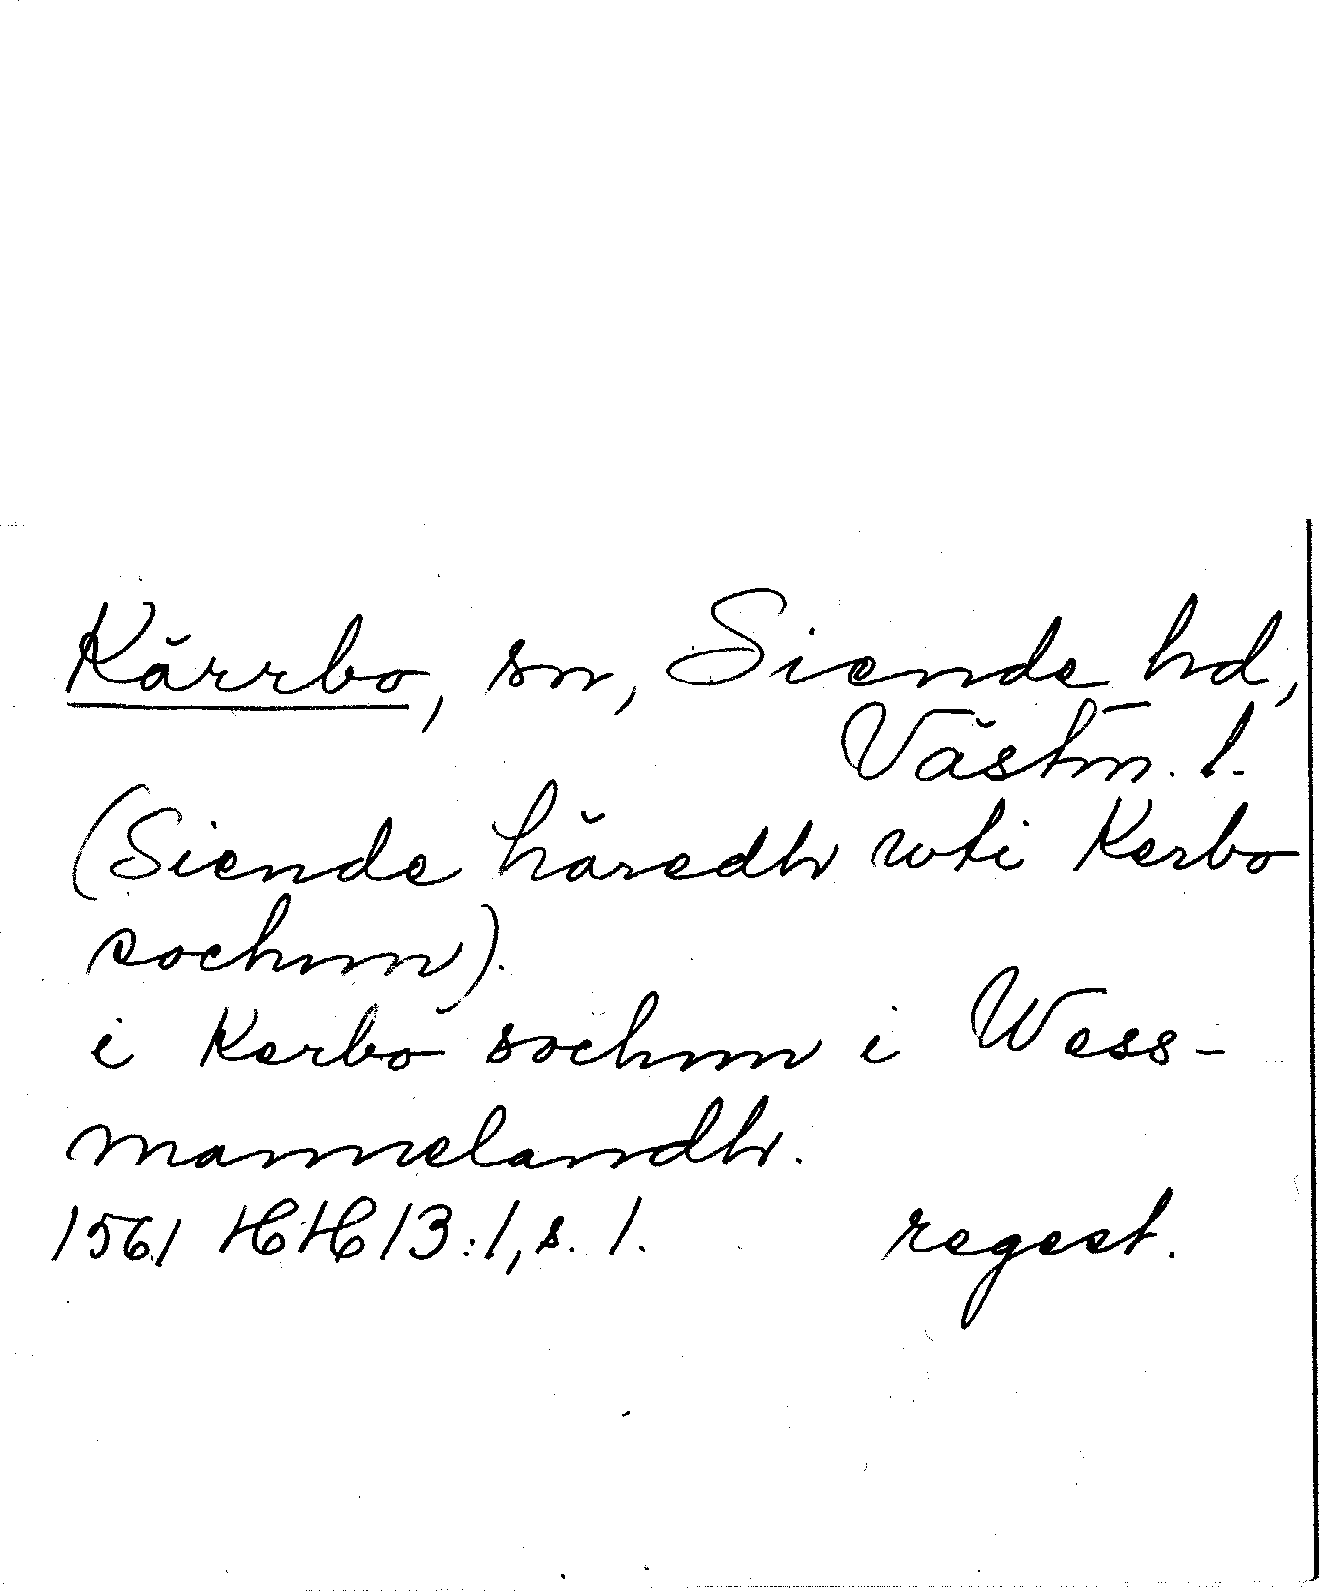 Kärrbo, sn, Siende hd,
Västm. l.
(Siende häredh wti Kerbo
sochnn).
i Kerbö sochnn i Wess-
mannelandh.
1561 HH 13:1, s. 1. regest.